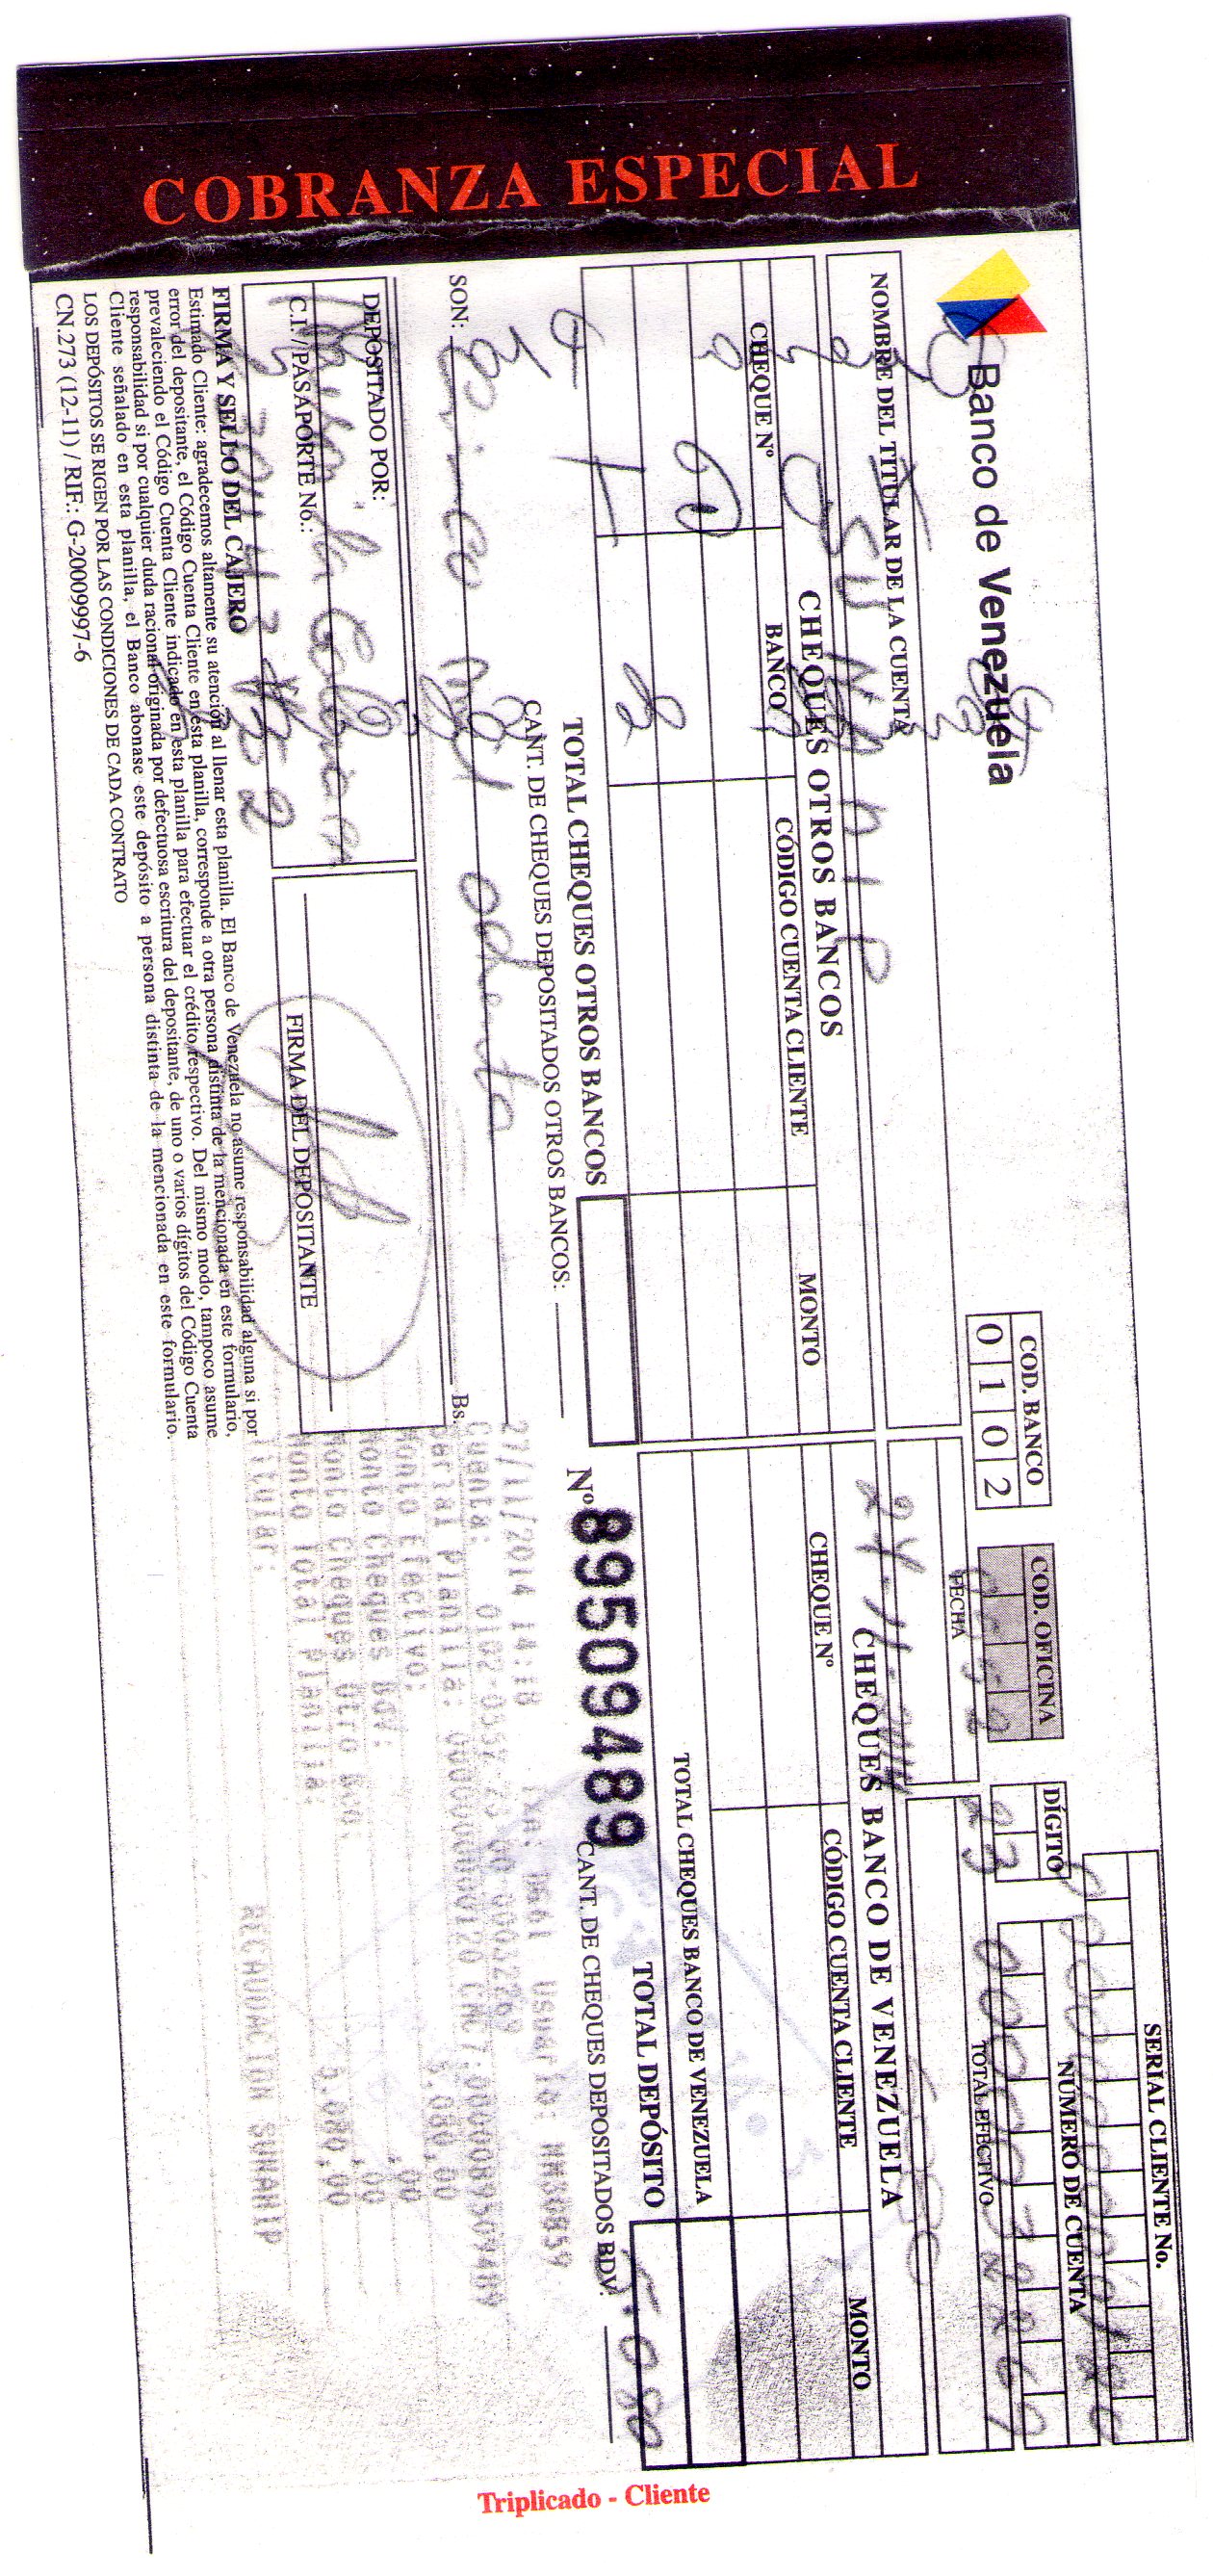 COBRANZA ESPECIAL
Banco de Venezuela
SERIAL CLIENTE No.
COD. BANCO
0 1 0 2
COD. OFICINA
DÍGITO
23
NÚMERO DE CUENTA
NOMBRE DEL TITULAR DE LA CUENTA
FECHA
TOTAL EFECTIVO
CHEQUES OTROS BANCOS
CHEQUES BANCO DE VENEZUELA
CHEQUE Nº
BANCO
CÓDIGO CUENTA CLIENTE
MONTO
CHEQUE Nº
CÓDIGO CUENTA CLIENTE
MONTO
TOTAL CHEQUES BANCO DE VENEZUELA
TOTAL CHEQUES OTROS BANCOS
TOTAL DEPÓSITO
5.080
CANT. DE CHEQUES DEPOSITADOS OTROS BANCOS:
Nº 89509489
CANT. DE CHEQUES DEPOSITADOS BDV:
SON: cinco mil ochenta Bs.
27/11/2014 14:18 Usuario: NM30859
Cuenta:
Serial Planilla:
Monto Efectivo: 5.080,00
Monto Cheques BdV: ,00
Monto Cheques Otro Bco. ,00
Monto Total Planilla: 5.080,00
Titular: RECAUDACION SUNAHIP
DEPOSITADO POR:
C.I./PASAPORTE No.:
FIRMA DEL DEPOSITANTE
FIRMA Y SELLO DEL CAJERO
Estimado Cliente: agradecemos altamente su atención al llenar esta planilla. El Banco de Venezuela no asume responsabilidad alguna si por
error del depositante, el Código Cuenta Cliente en esta planilla, corresponde a otra persona distinta de la mencionada en este formulario,
prevaleciendo el Código Cuenta Cliente indicado en esta planilla para efectuar el crédito respectivo. Del mismo modo, tampoco asume
responsabilidad si por cualquier duda racional originada por defectuosa escritura del depositante, de uno o varios dígitos del Código Cuenta
Cliente señalado en esta planilla, el Banco abonase este depósito a persona distinta de la mencionada en este formulario.
LOS DEPÓSITOS SE RIGEN POR LAS CONDICIONES DE CADA CONTRATO
CN.273 (12-11) / RIF.: G-20009997-6
Triplicado - Cliente